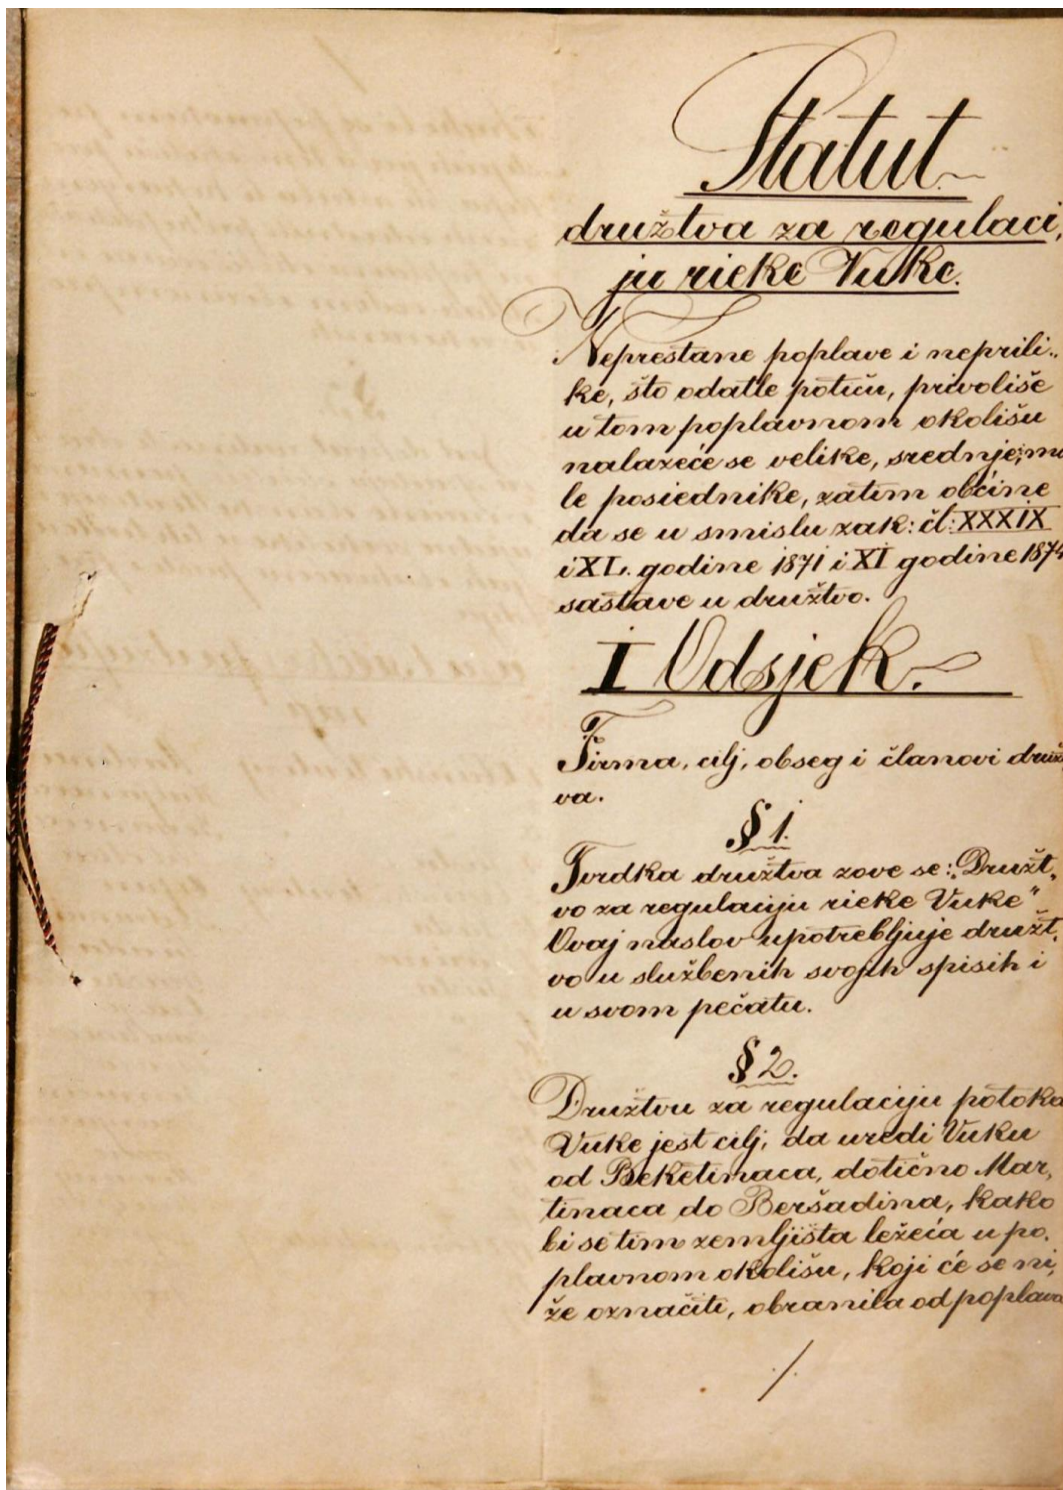 Statut
družtva za regulaci,
ju rieke Vuke.
Neprestane poplave i neprili..
ke, što odatle potiču, privoliše
u tom poplavnom okolišu
nalazeće se velike, srednje, ma
le posiednike, zatim obćine
da se u smislu zak: čl: XXXIX
i XL. godine 1871 i XI godine 1874
sastave u družtvo.
I Odsjek.
Firma, cilj, obseg i članovi druž
va.
§ 1.
Tvrdka družtva zove se: „Družt,
vo za regulaciju rieke Vuke"
Ovaj naslov upotrebljuje družt,
vo u službenih svojih spisih i
u svom pečatu.
§ 2.
Družtvu za regulaciju potoka
Vuke jest cilj, da uredi Vuku
od Beketinaca, dotično Mar,
tinaca do Beršadina, kako
bi se tim zemljišta ležeća u po,
plavnom okolišu, koji će se ni,
že označiti, obranila od poplava
./.